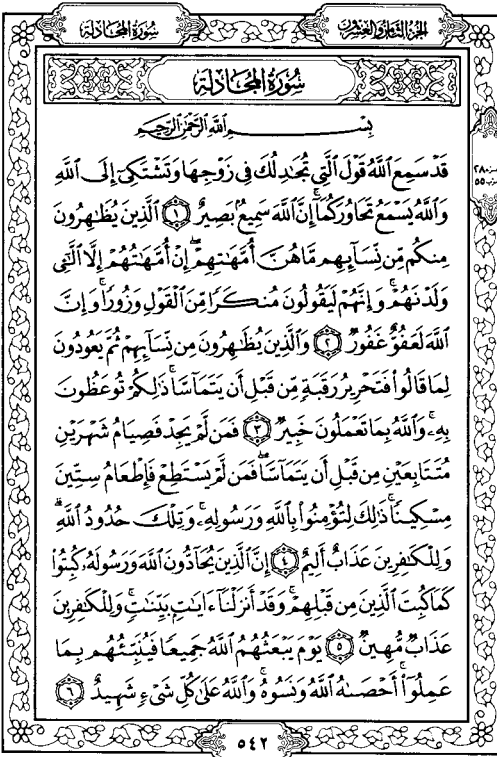 سُورَةُ المُجَادلة
الجُزءُ الثَّامِنُ وَالعِشرُونَ
سُورَةُ المُجَادلة
بِسْمِ ٱللَّهِ ٱلرَّحْمَٰنِ ٱلرَّحِيمِ
قَدْ سَمِعَ ٱللَّهُ قَوْلَ ٱلَّتِى تُجَٰدِلُكَ فِى زَوْجِهَا وَتَشْتَكِىٓ إِلَى ٱللَّهِ
وَٱللَّهُ يَسْمَعُ تَحَاوُرَكُمَآ ۚ إِنَّ ٱللَّهَ سَمِيعٌۢ بَصِيرٌ ١ ٱلَّذِينَ يُظَٰهِرُونَ
مِنكُم مِّن نِّسَآئِهِم مَّا هُنَّ أُمَّهَٰتِهِمْ ۖ إِنْ أُمَّهَٰتُهُمْ إِلَّا ٱلَّٰٓـِٔى
وَلَدْنَهُمْ ۚ وَإِنَّهُمْ لَيَقُولُونَ مُنكَرًا مِّنَ ٱلْقَوْلِ وَزُورًا ۚ وَإِنَّ
ٱللَّهَ لَعَفُوٌّ غَفُورٌ ٢ وَٱلَّذِينَ يُظَٰهِرُونَ مِن نِّسَآئِهِمْ ثُمَّ يَعُودُونَ
لِمَا قَالُوا۟ فَتَحْرِيرُ رَقَبَةٍ مِّن قَبْلِ أَن يَتَمَآسَّا ۚ ذَٰلِكُمْ تُوعَظُونَ
بِهِۦ ۚ وَٱللَّهُ بِمَا تَعْمَلُونَ خَبِيرٌ ٣ فَمَن لَّمْ يَجِدْ فَصِيَامُ شَهْرَيْنِ
مُتَتَابِعَيْنِ مِن قَبْلِ أَن يَتَمَآسَّا ۖ فَمَن لَّمْ يَسْتَطِعْ فَإِطْعَامُ سِتِّينَ
مِسْكِينًا ۚ ذَٰلِكَ لِتُؤْمِنُوا۟ بِٱللَّهِ وَرَسُولِهِۦ ۚ وَتِلْكَ حُدُودُ ٱللَّهِ ۗ
وَلِلْكَٰفِرِينَ عَذَابٌ أَلِيمٌ ٤ إِنَّ ٱلَّذِينَ يُحَآدُّونَ ٱللَّهَ وَرَسُولَهُۥ كُبِتُوا۟
كَمَا كُبِتَ ٱلَّذِينَ مِن قَبْلِهِمْ ۚ وَقَدْ أَنزَلْنَآ ءَايَٰتٍۭ بَيِّنَٰتٍ ۚ وَلِلْكَٰفِرِينَ
عَذَابٌ مُّهِينٌ ٥ يَوْمَ يَبْعَثُهُمُ ٱللَّهُ جَمِيعًا فَيُنَبِّئُهُم بِمَا
عَمِلُوٓا۟ ۚ أَحْصَىٰهُ ٱللَّهُ وَنَسُوهُ ۚ وَٱللَّهُ عَلَىٰ كُلِّ شَىْءٍ شَهِيدٌ ٦
٥٤٢